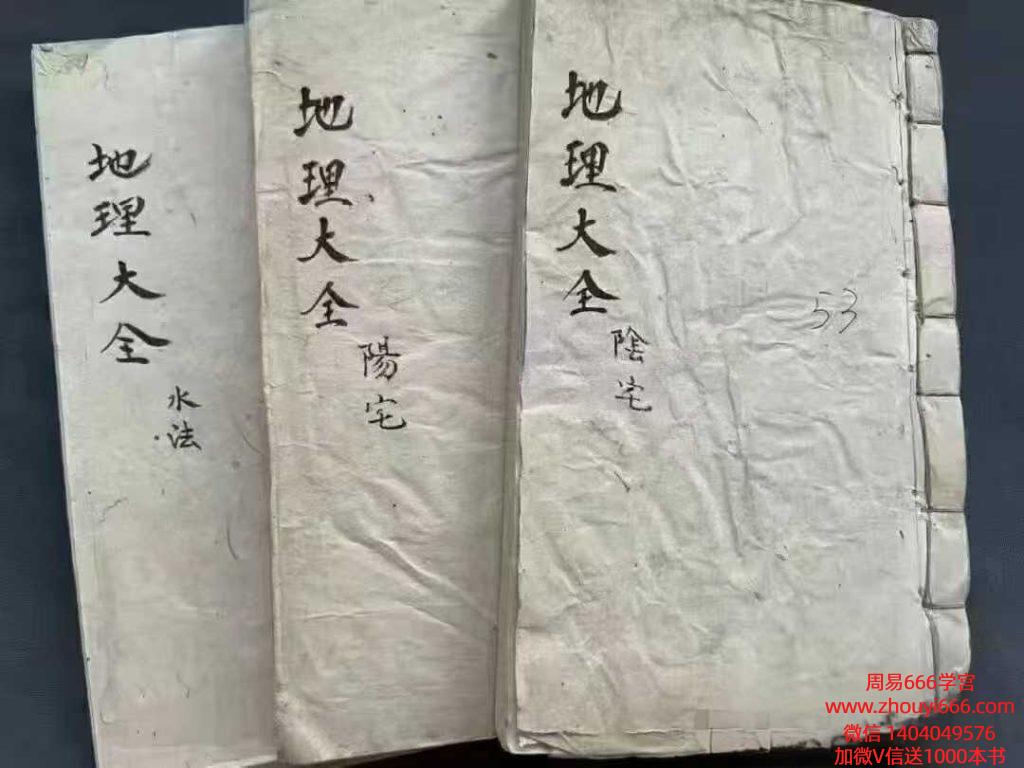 地理大全
陰宅
53
地理大全
陽宅
地理大全
水法
周易666学宫
www.zhouyi666.com
微信 1404049576
加微V信送1000本书